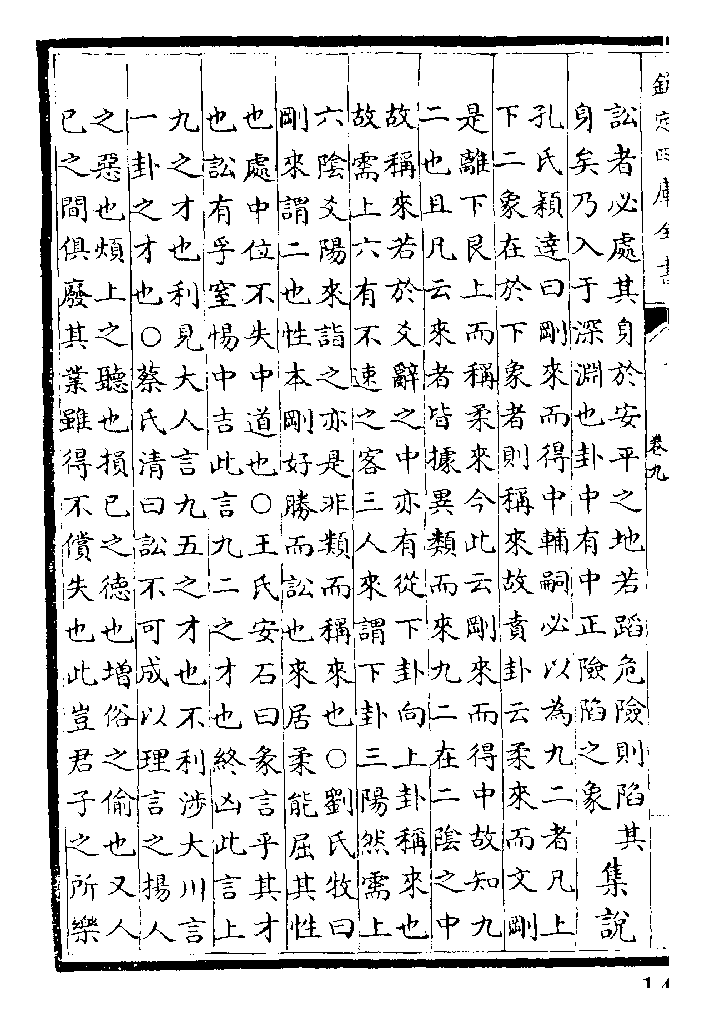 欽定四庫全書
卷九
訟者必處其身於安平之地若蹈危險則陷其
身矣乃入于深淵也卦中有中正險陷之象
集說
孔氏穎達曰剛來而得中輔嗣必以為九二者凡上
下二象在於下象者則稱來故賁卦云柔來而文剛
是離下艮上而稱柔來今此云剛來而得中故知九
二也且凡云來者皆據異類而來九二在二陰之中
故稱來若於爻辭之中亦有從下卦向上卦稱來也
故需上六有不速之客三人來謂下卦三陽然需上
六陰爻陽來詣之亦是非類而稱來也○劉氏牧曰
剛來謂二也性本剛好勝而訟也來居柔能屈其性
也處中位不失中道也○王氏安石曰彖言乎其才
也訟有孚窒惕中吉此言九二之才也終凶此言上
九之才也利見大人言九五之才也不利涉大川言
一卦之才也○蔡氏清曰訟不可成以理言之揚人
之惡也煩上之聽也損己之德也增俗之偷也又人
己之間俱廢其業雖得不償失也此豈君子之所樂